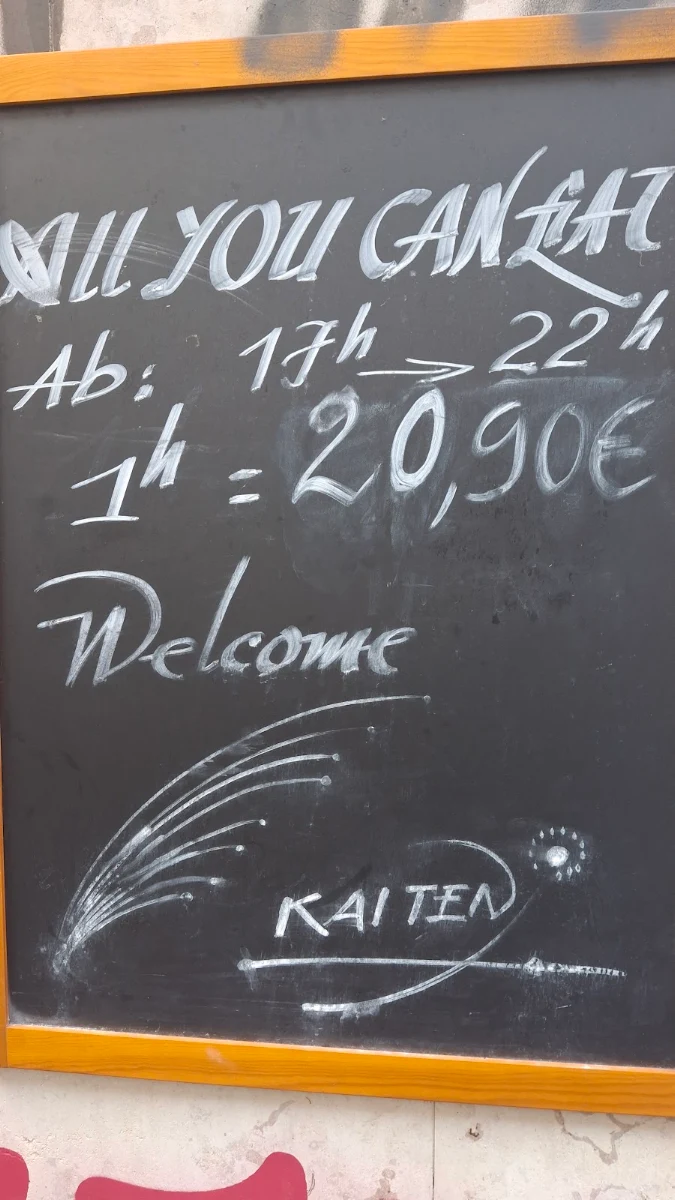 All YOU CAN EAT
Ab: 17h → 22h
1h = 20,90€
Welcome
KAITEN